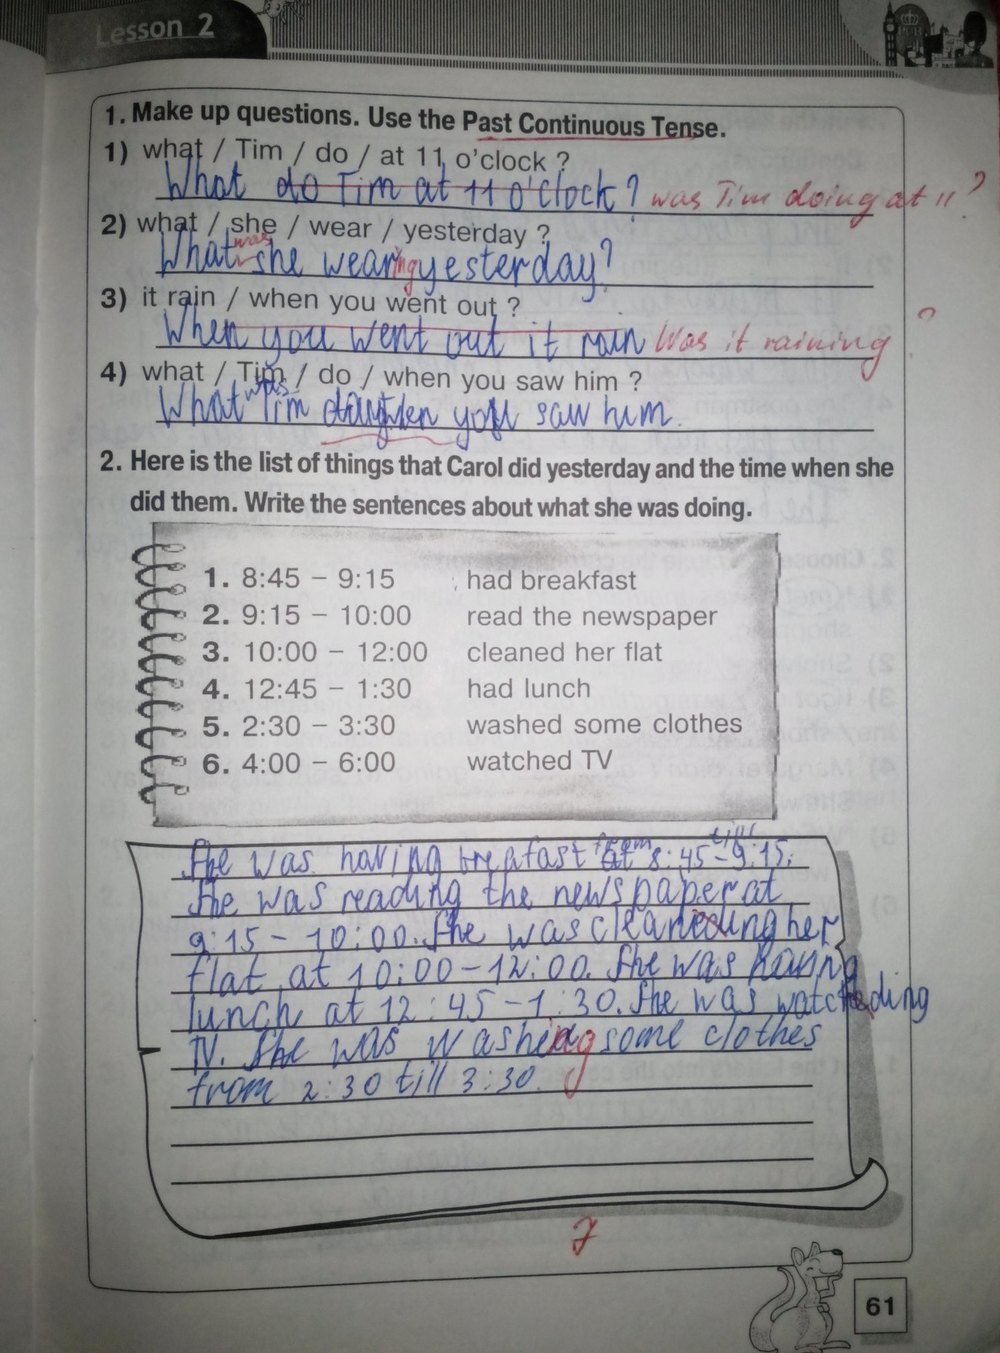 Lesson 2
1. Make up questions. Use the Past Continuous Tense.
1) what / Tim / do / at 11 o'clock ?
What do Tim at 11 o'clock? was Tim doing at 11 ?
2) what / she / wear / yesterday ?
What was she wearing yesterday?
3) it rain / when you went out ?
When you went out it rain Was it raining ?
4) what / Tim / do / when you saw him ?
What was Tim you saw him.
2. Here is the list of things that Carol did yesterday and the time when she
did them. Write the sentences about what she was doing.
1. 8:45 – 9:15 had breakfast
2. 9:15 – 10:00 read the newspaper
3. 10:00 – 12:00 cleaned her flat
4. 12:45 – 1:30 had lunch
5. 2:30 – 3:30 washed some clothes
6. 4:00 – 6:00 watched TV
She was having brefast from at 8:45 – till 9:15.
She was reading the newspaper at
9:15 – 10:00. She was her
flat at 10:00 – 12:00. She was
lunch at 12:45 – 1:30. She was
TV. She was washing some clothes
from 2:30 till 3:30.
7
61